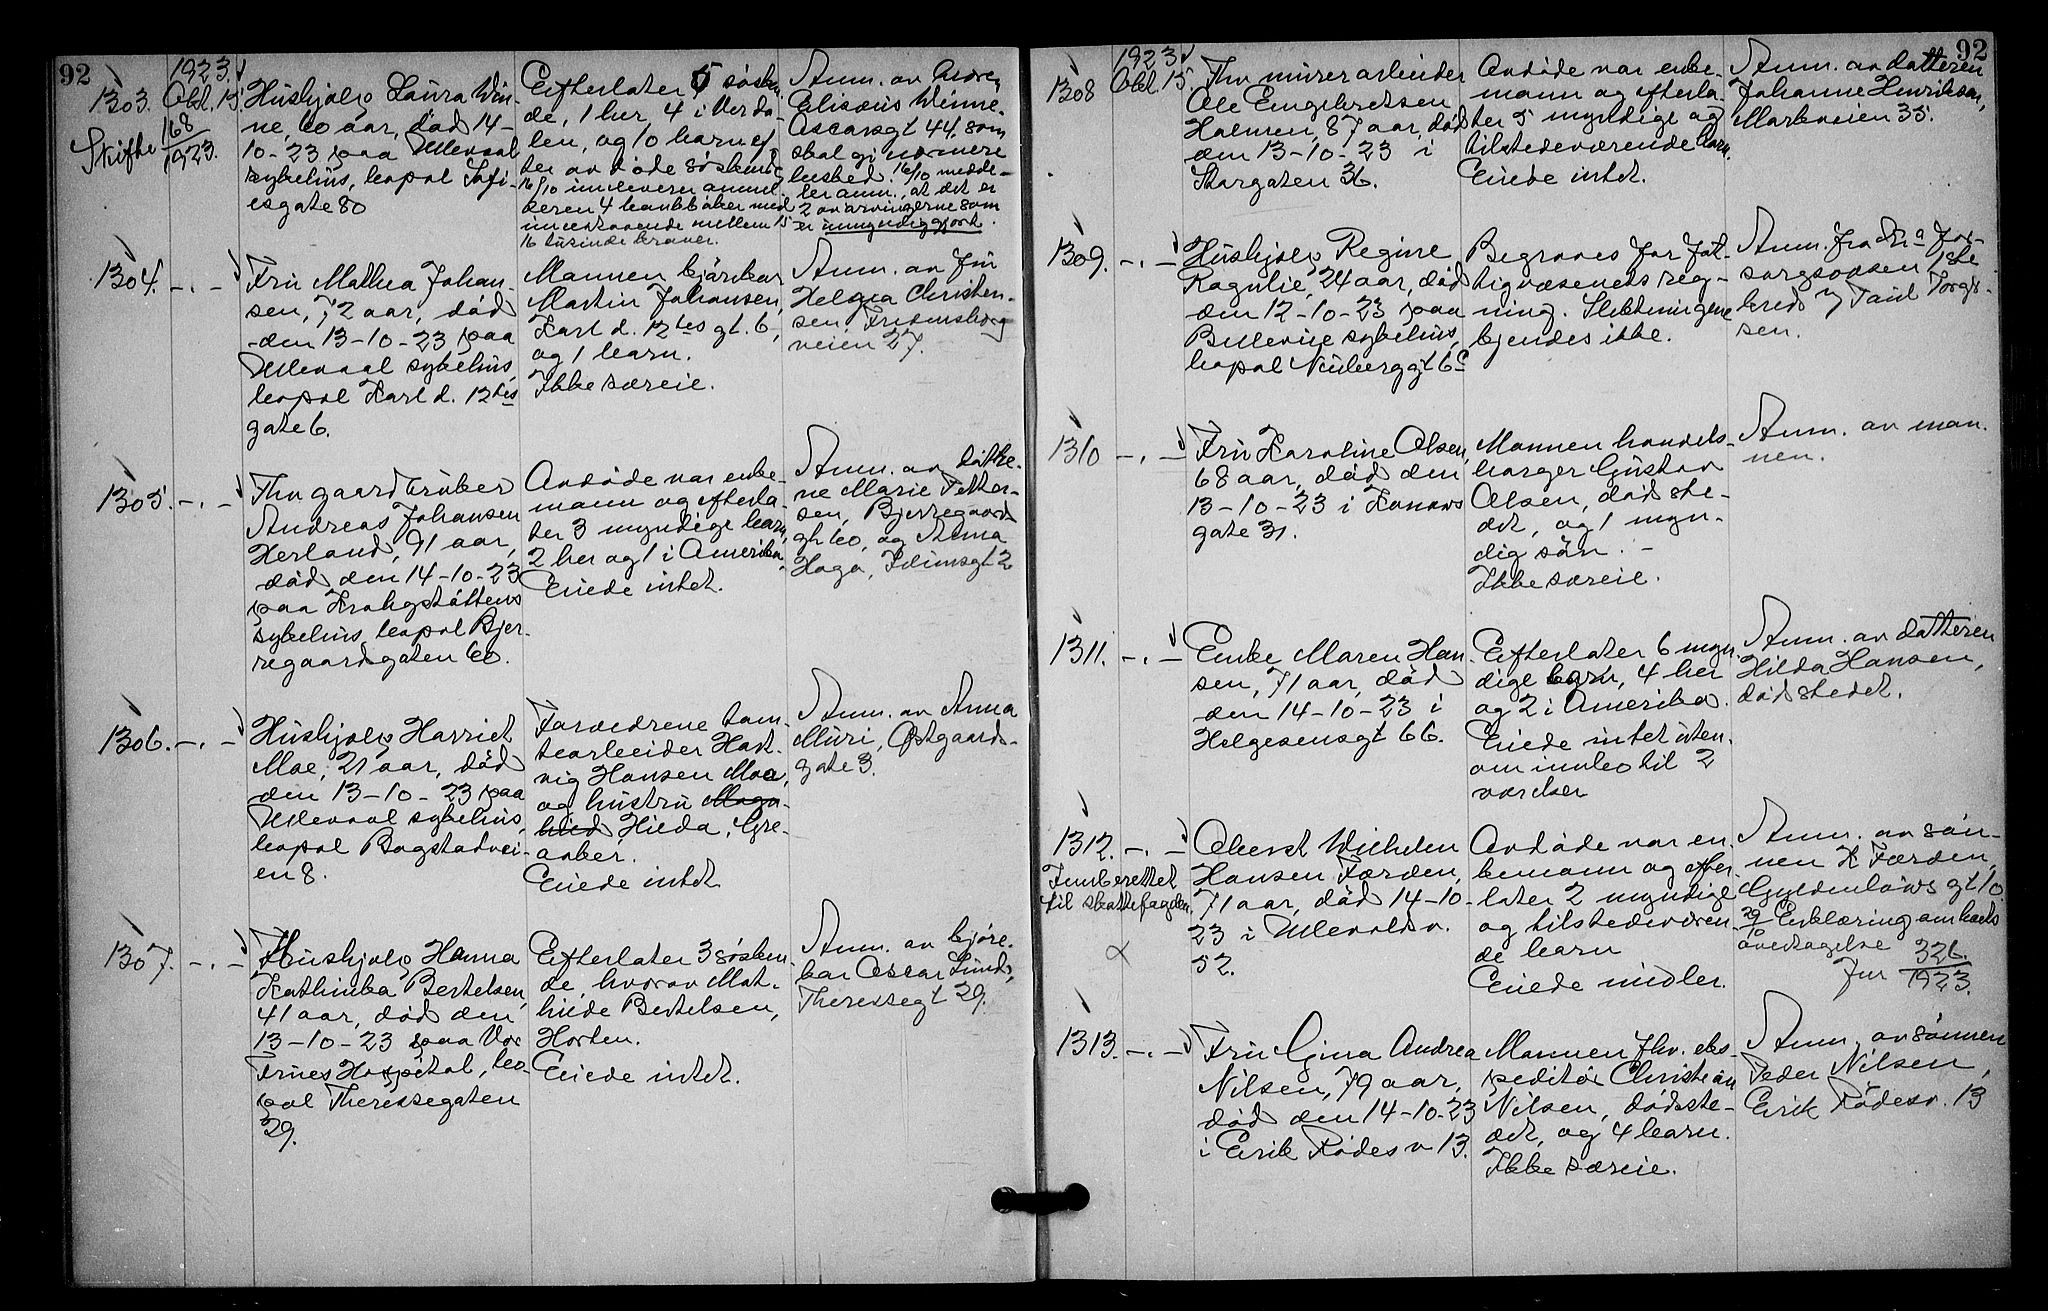 92
1923.
1303.
Okt. 15.
Skifte 168/1923.
Hushjelp Laura Vin-
ne, 60 aar, død 14-
10-23 paa Ullevaal
sykehus, bopæl Sofi-
esgate 80
Efterlater 5 søsken-
de, 1 her, 4 i Verda-
len, og 10 barn ef-
ter avdøde søskende
16/10 innleverer anmel-
deren 4 bankbøker med
innestaaende mellem 15
16 tusinde kroner.
Anm. av
Elisæus Vinne
Oscarsgt 44, som
skal gi nærmere
besked. 16/10 medde-
ler anm., at det er
2 av arvingerne som
er umyndiggjort.
1304. -.-
Fru Mathea Johan-
sen, 72 aar, død
den 13-10-23 paa
Ullevaal sykehus,
bopæl Karl d. 12tes
gate 6.
Mannen kjørekar
Martin Johansen,
Karl d. 12tes gt. 6,
og 1 barn.
Ikke særeie.
Anm. av fru
Helga Christen-
sen, Fredensborg
veien 27.
1305. -.-
Fhv gaardbruker
Andreas Johansen
Herland, 91 aar,
død den 14-10-23
paa Krohgstøttens
sykehus, bopæl Bjer-
regaardsgaten 60.
Avdøde var enke-
mann og efterla-
ter 3 myndige barn,
2 her og 1 i Amerika.
Eiede intet.
Anm. av døtre-
ne Marie Petter-
sen, Bjerregaards
gt 60, og Anna
Haga, Iduns gt 2
1306. -.-
Hushjelp Harriet
Moe, 21 aar, død
den 13-10-23 paa
Ullevaal sykehus,
bopæl Bogstadvei-
en 8.
Forældrene tom-
tearbeider Hart-
vig Hansen Moe,
og hustru Magn-
hild Hilda, Gre-
aaker.
Eiede intet
Anm. av Anna
Muri, Østgaards-
gate 3.
1307. -.-
Hushjelp Hanna
Kathinka Bertelsen,
41 aar, død den
13-10-23 paa Vor
Frues Hospital, bo-
pæl Theresegaten
29.
Efterlater 3 søsken-
de, hvorav Mat-
hilde Bertelsen,
Horten.
Eiede intet.
Anm. av kjøre-
kar Oscar Lund,
Theresesgt 29.
92
1923
1308
Okt. 15.
Fhv murerarbeider
Ole Engebretsen
Holmen, 87 aar, død
den 13-10-23 i
Storgaten 36.
Avdøde var enke-
mann og efterla-
ter 5 myndige og
tilstedeværende barn.
Eiede intet.
Anm. av datteren
Johanne Henriksen,
Markveien 35.
1309. -.-
Hushjelp Regine
Rognlie, 24 aar, død
den 12-10-23 paa
Bellevue sykehus,
bopæl Neuberggt 6c
Begraves for fat-
tigvæsenets reg-
ning. Slektningene
kjendes ikke.
Anm. fra Fra for-
sorgsvæsen 1ste
kreds v/ Paul Torgr-
sen.
1310 -.-
Fru Karoline Olsen,
68 aar, død den
13-10-23 i Kanons
gate 31.
Mannen handels-
borger Gustav
Olsen, dødste-
det, og 1 myn-
dig søn. -
Ikke særeie.
Anm. av man-
nen.
1311. -.-
Enke Maren Han-
sen, 71 aar, død
den 14-10-23 i
Helgesensgt 66.
Efterlater 6 myn-
dige barn, 4 her
og 2 i Amerika.
Eiede intet uten-
om innbo til 2
værelser
Anm. av datteren
Hilda Hansen,
dødstedet.
1312. -.-
Innberettet
til skattefogden.
Oberst Wilhelm
Hansen Færden,
71 aar, død 14-10-
23 i Ullevaldsv.
52.
Avdøde var en-
kemann og efter-
later 2 myndige
og tilstedeværen-
de barn
Eiede midler.
Anm. av søn-
nen H Færden,
Gyldenløws gt 10
29/10 Erklæring om boets
overtagelse
Jnr 326/1923.
1313. -.-
Fru Gina Andrea
Nilsen, 79 aar,
død den 14-10-23
i Eirik Rødes v 13.
Mannen fhv. eks-
peditør Christian
Nilsen, dødste-
det, og 4 barn.
Ikke særeie.
Anm. av sønnen
Peder Nilsen,
Eirik Rødesv. 13